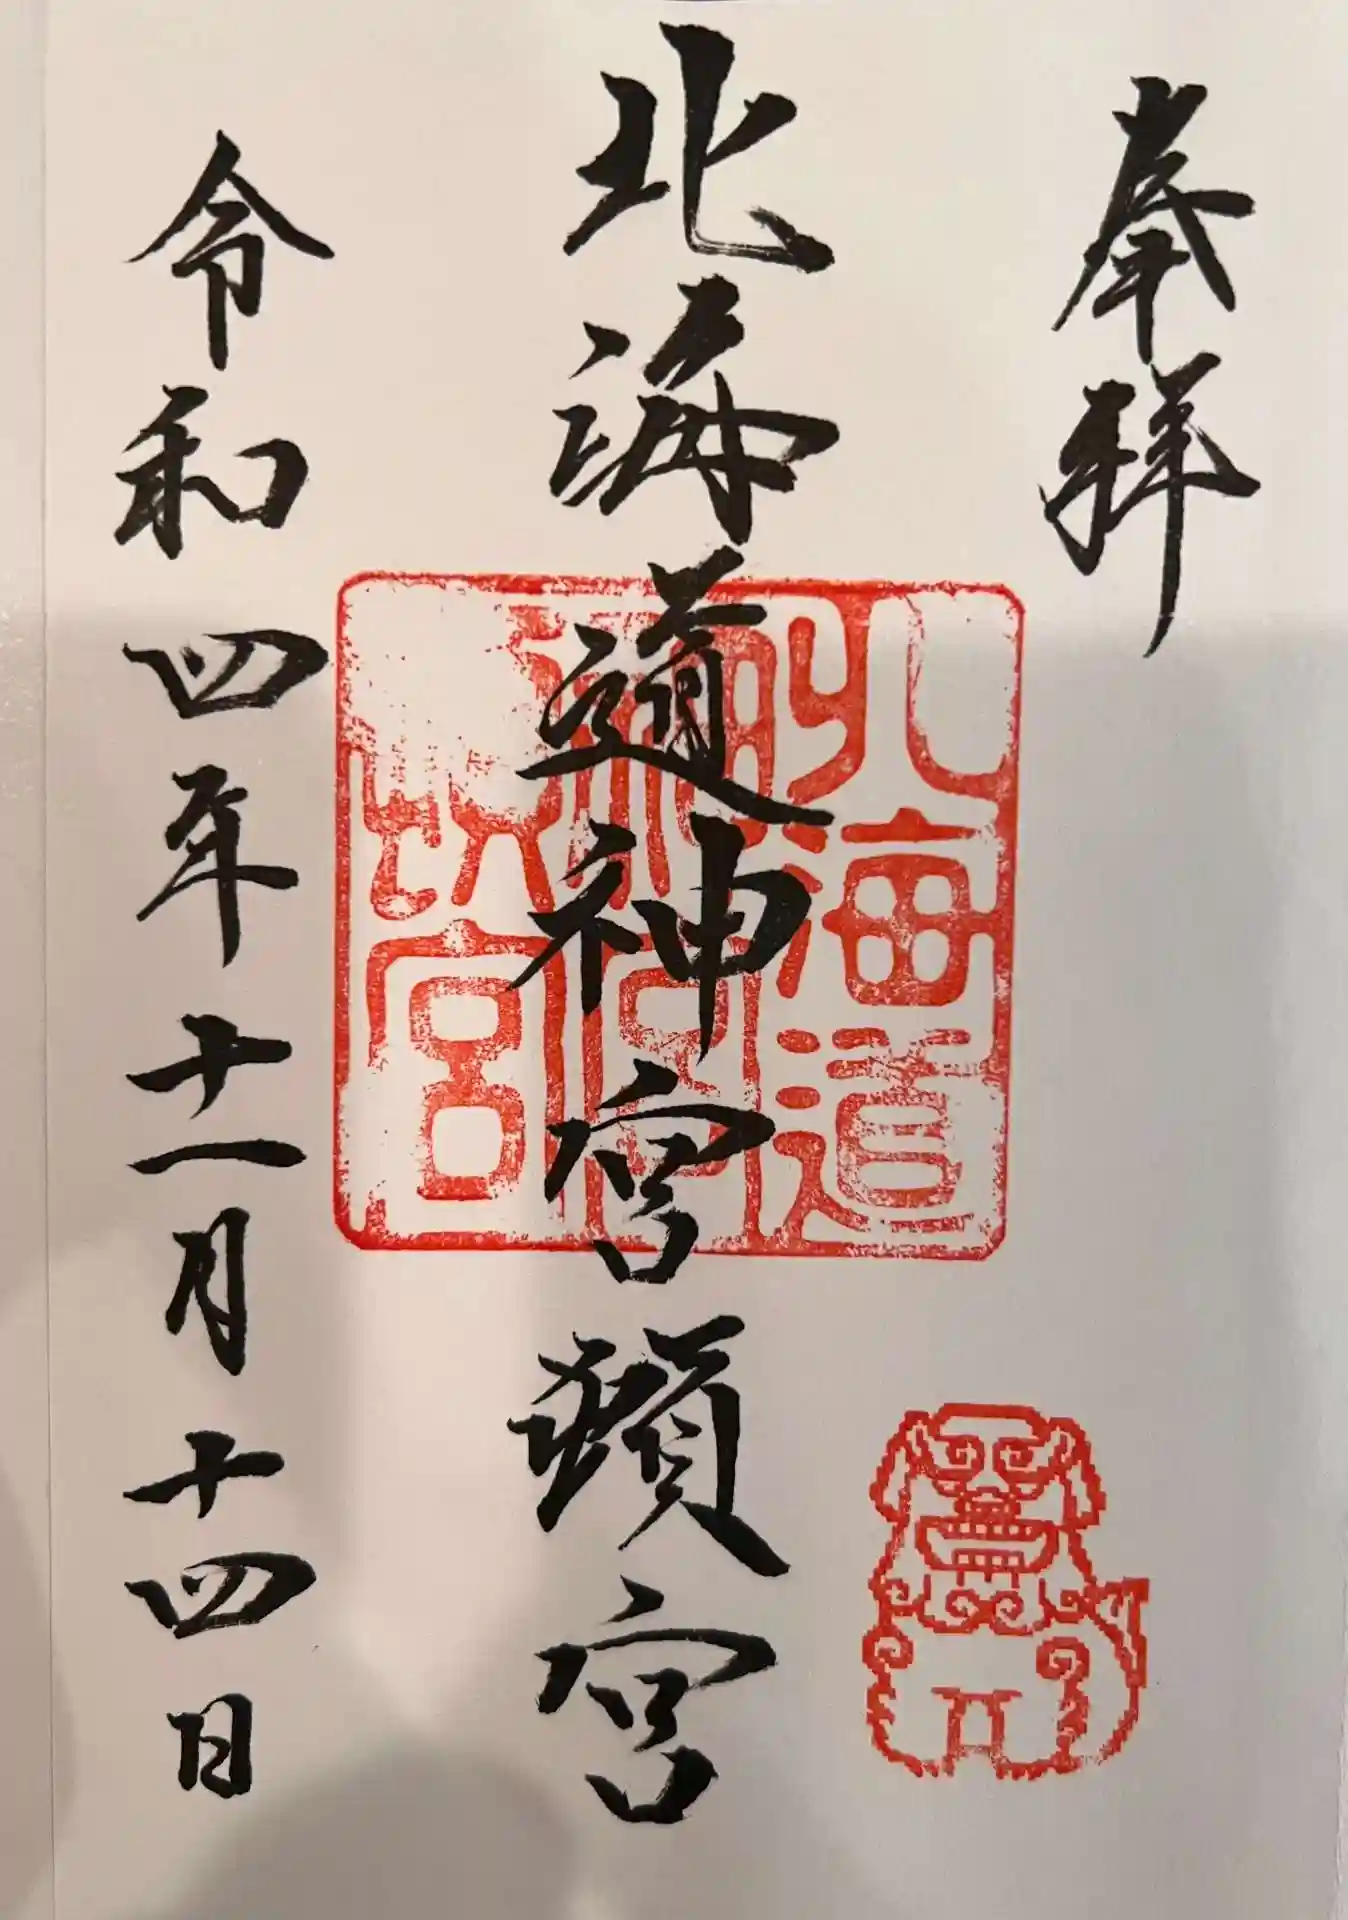 奉拝
北海道神宮頓宮
北海道
神宮
頓宮
令和四年十一月十四日